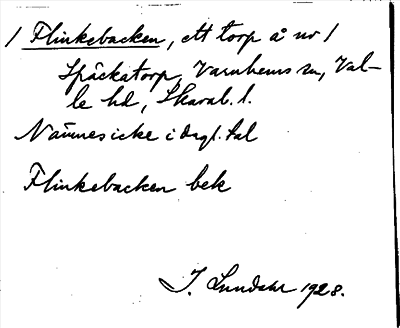 / Flinkebacken, ett torp å no 1
Späckatorp, Varnhems sn, Val-
le hd, Skarab. l.
Nämnes icke i dagl. tal
Flinkebacken bek
J. Lundahl 1928.